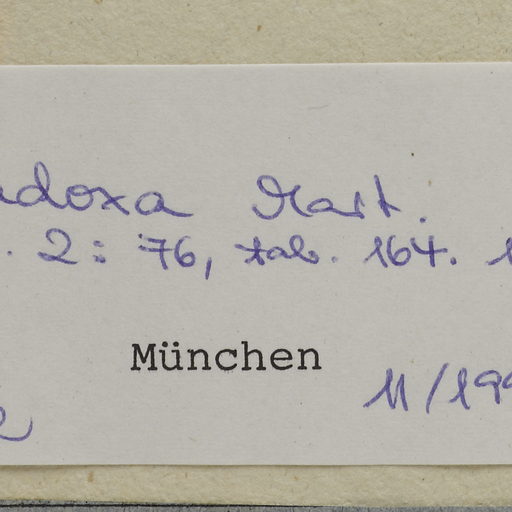 adoxa Mart.
. 2: 76, tab. 164. 1
München
11/199